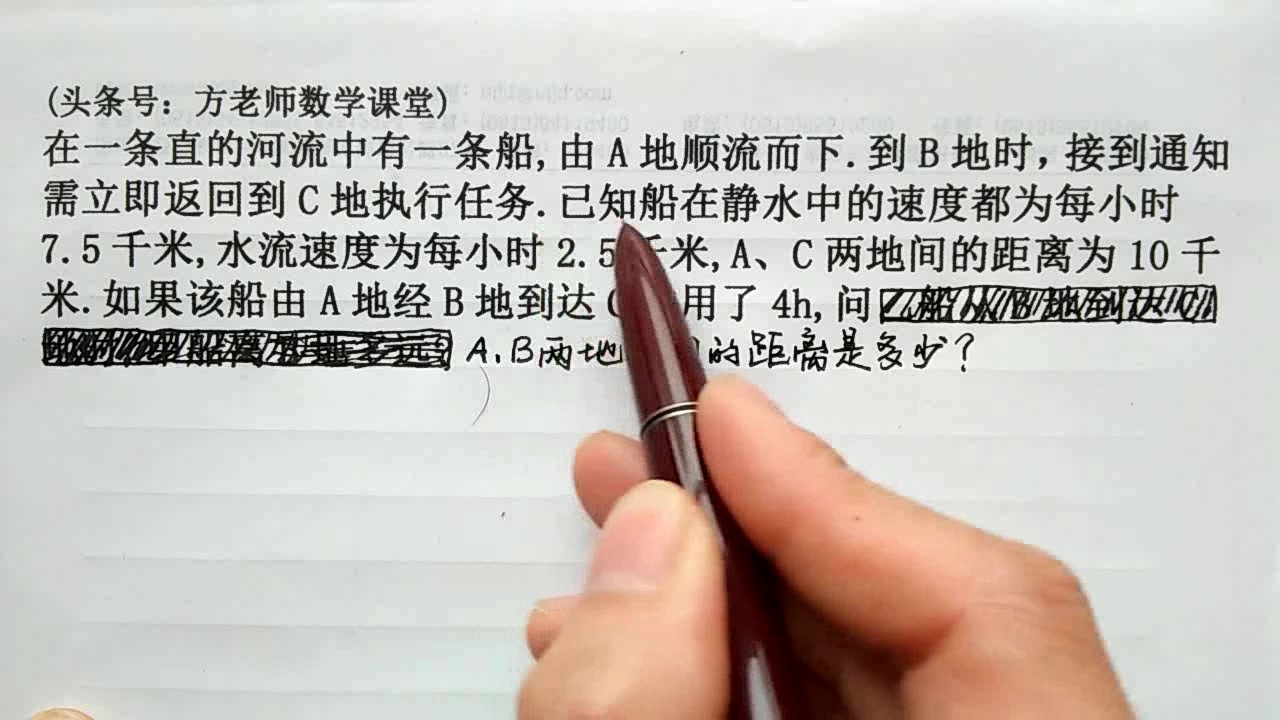 (头条号：方老师数学课堂)
在一条直的河流中有一条船,由 A 地顺流而下.到 B 地时，接到通知
需立即返回到 C 地执行任务.已知船在静水中的速度都为每小时
7.5 千米,水流速度为每小时 2.5 千米,A、C 两地间的距离为 10 千
米.如果该船由 A 地经 B 地到达 C 用了 4h,问
A.B两地 的距离是多少？